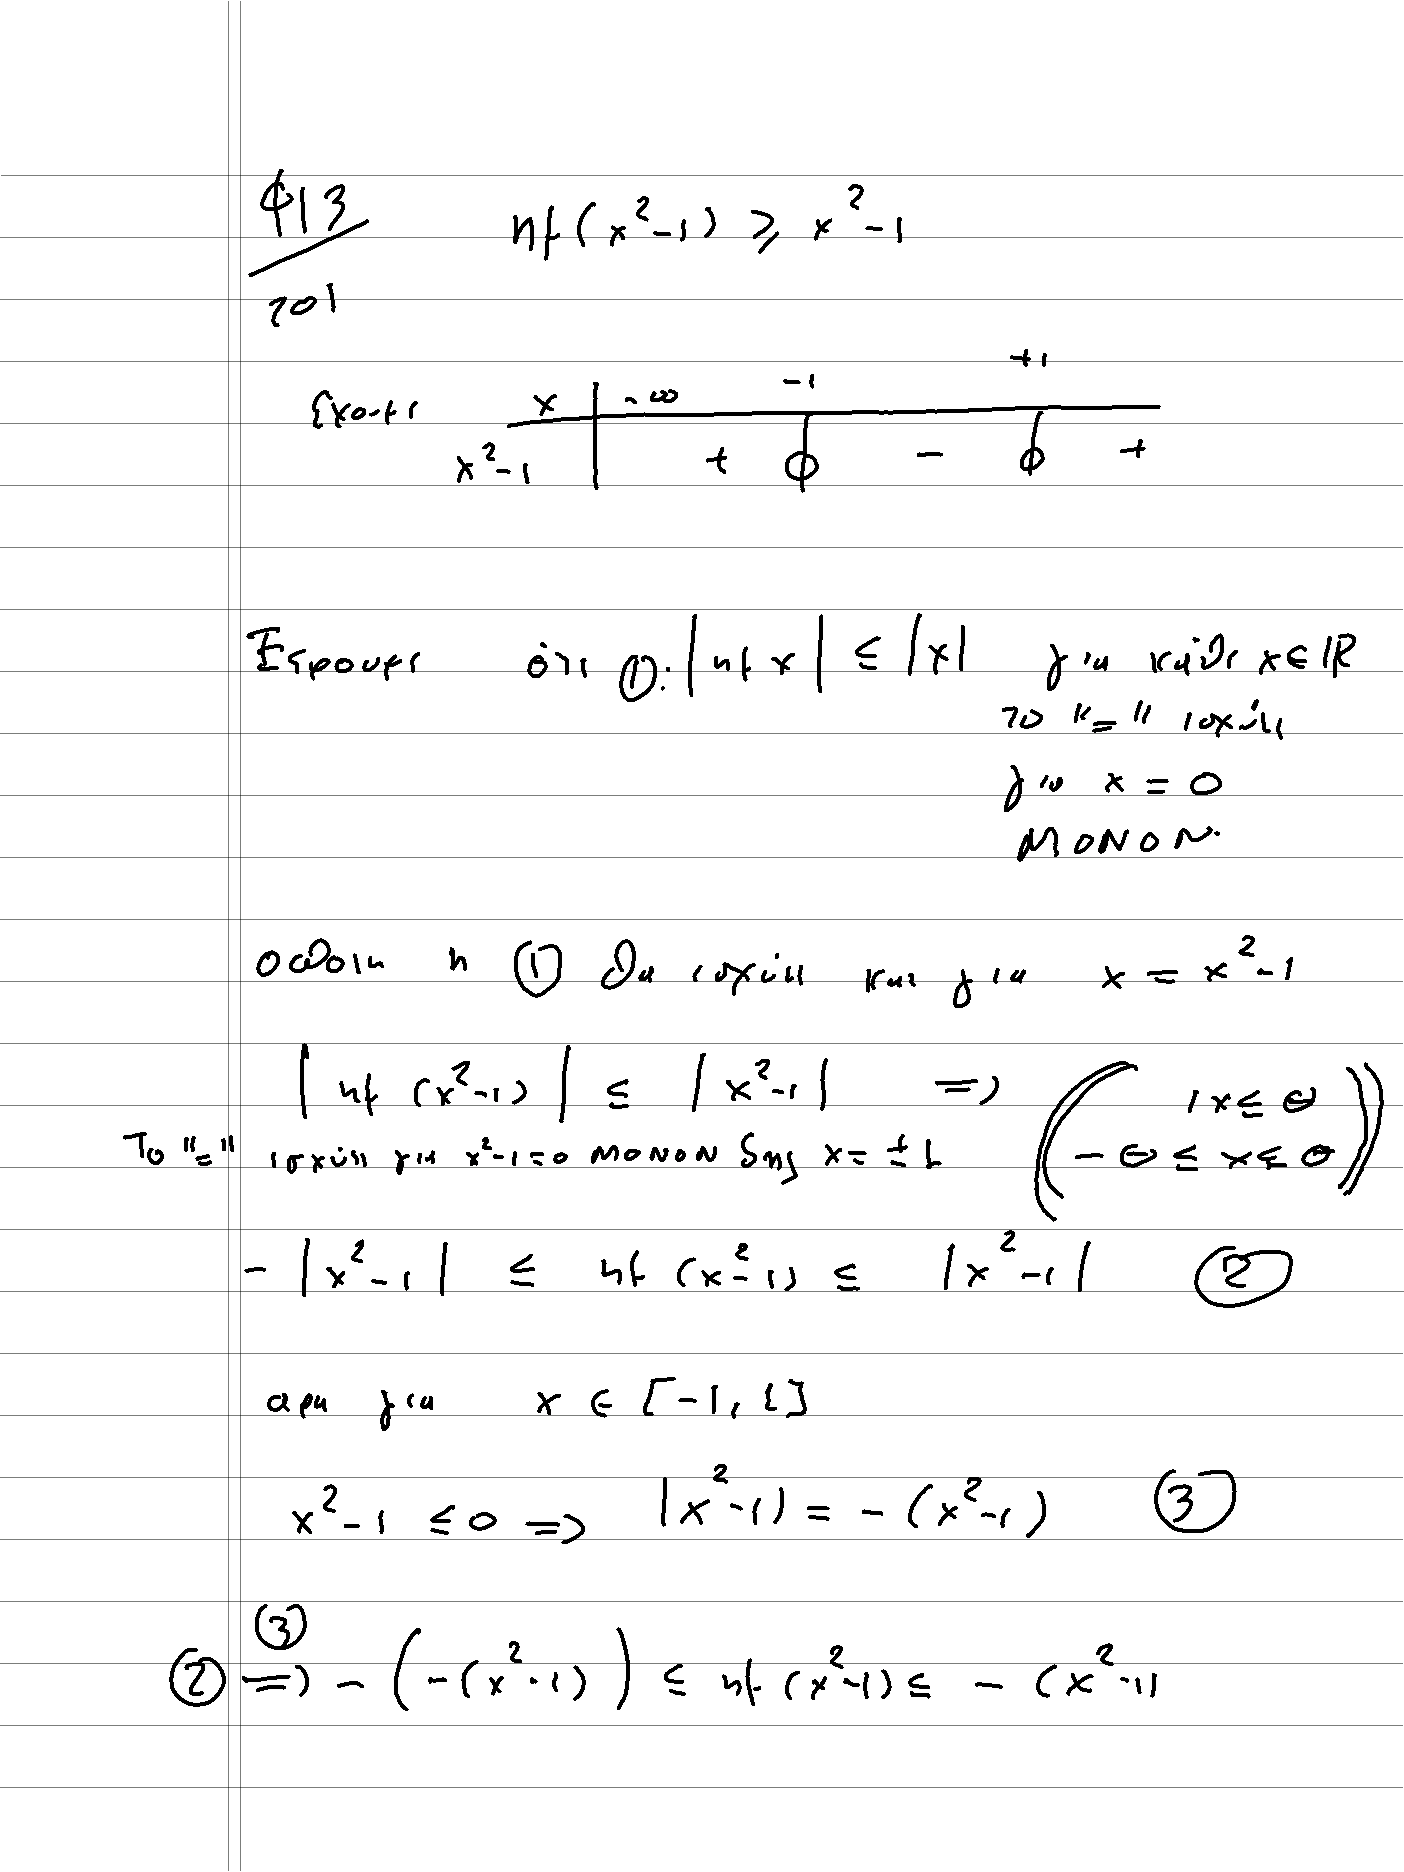 φ13 ημ(x²-1) ≥ x²-1
201
Έχουμε x | -∞ -1 +1
x²-1 | + φ - φ +
Ξέρουμε ότι ①: |ημ x| ≤ |x| για κάθε x ∈ ℝ
το "=" ισχύει
για x = 0
ΜΟΝΟΝ.
οπότε η ① θα ισχύει και για x = x²-1
|ημ (x²-1)| ≤ |x²-1| => ( |x ≤ θ
Το "=" ισχύει για x²-1=0 ΜΟΝΟΝ δης x = ±1 -θ ≤ x ≤ θ )
-|x²-1| ≤ ημ (x²-1) ≤ |x²-1| ②
αρα για x ∈ [-1, 1]
x²-1 ≤ 0 => |x²-1| = -(x²-1) ③
③
② => -(-(x²-1)) ≤ ημ (x²-1) ≤ -(x²-1)